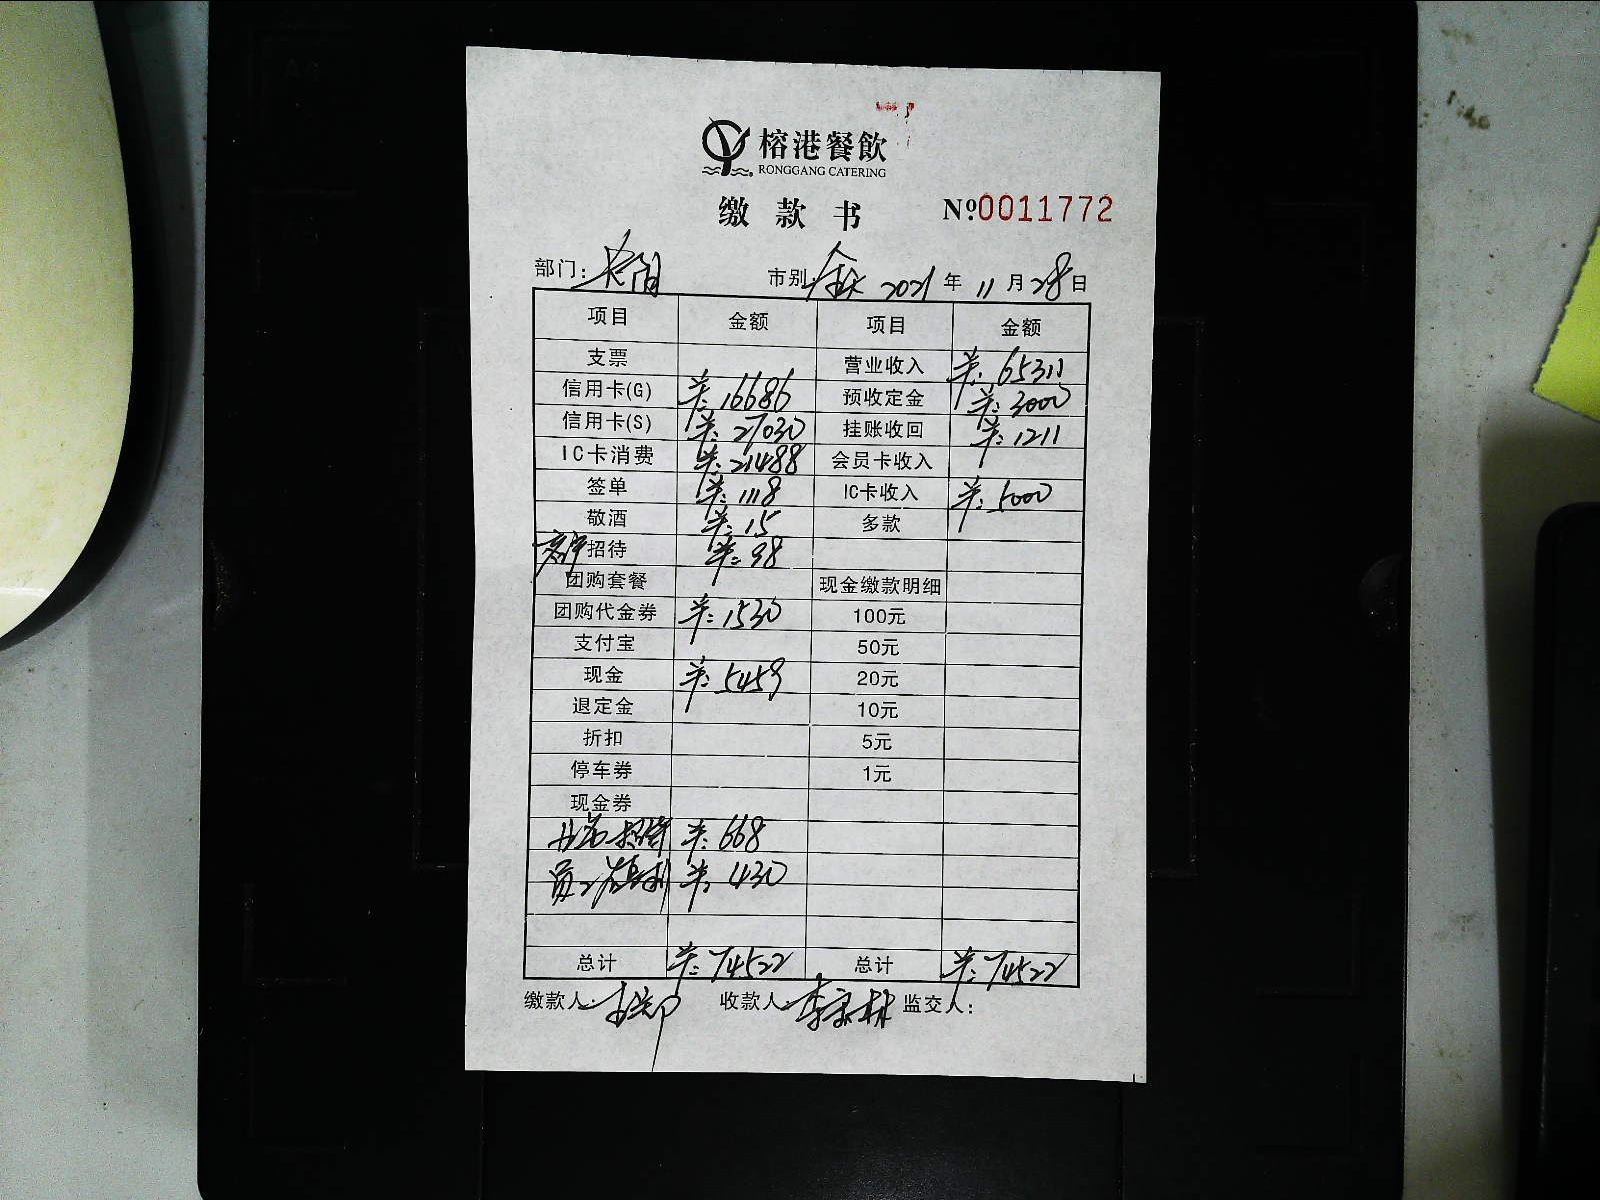 榕港餐飲
RONGGANG CATERING
缴款书 №0011772
部门: 市别: 全天 2021年11月28日
项目 金额 项目 金额
支票 营业收入 ¥:65311
信用卡(G) ¥:16686 预收定金 ¥:3000
信用卡(S) ¥:27030 挂账收回 ¥:1211
IC卡消费 ¥:21488 会员卡收入
签单 ¥:1118 IC卡收入 ¥:5000
敬酒 ¥:15 多款
招待 ¥:98
团购套餐 现金缴款明细
团购代金券 ¥:1530 100元
支付宝 50元
现金 ¥:5459 20元
退定金 10元
折扣 5元
停车券 1元
现金券
招待 ¥:668
员工 ¥:430
总计 ¥:74522 总计 ¥:74522
缴款人: 收款人: 监交人: